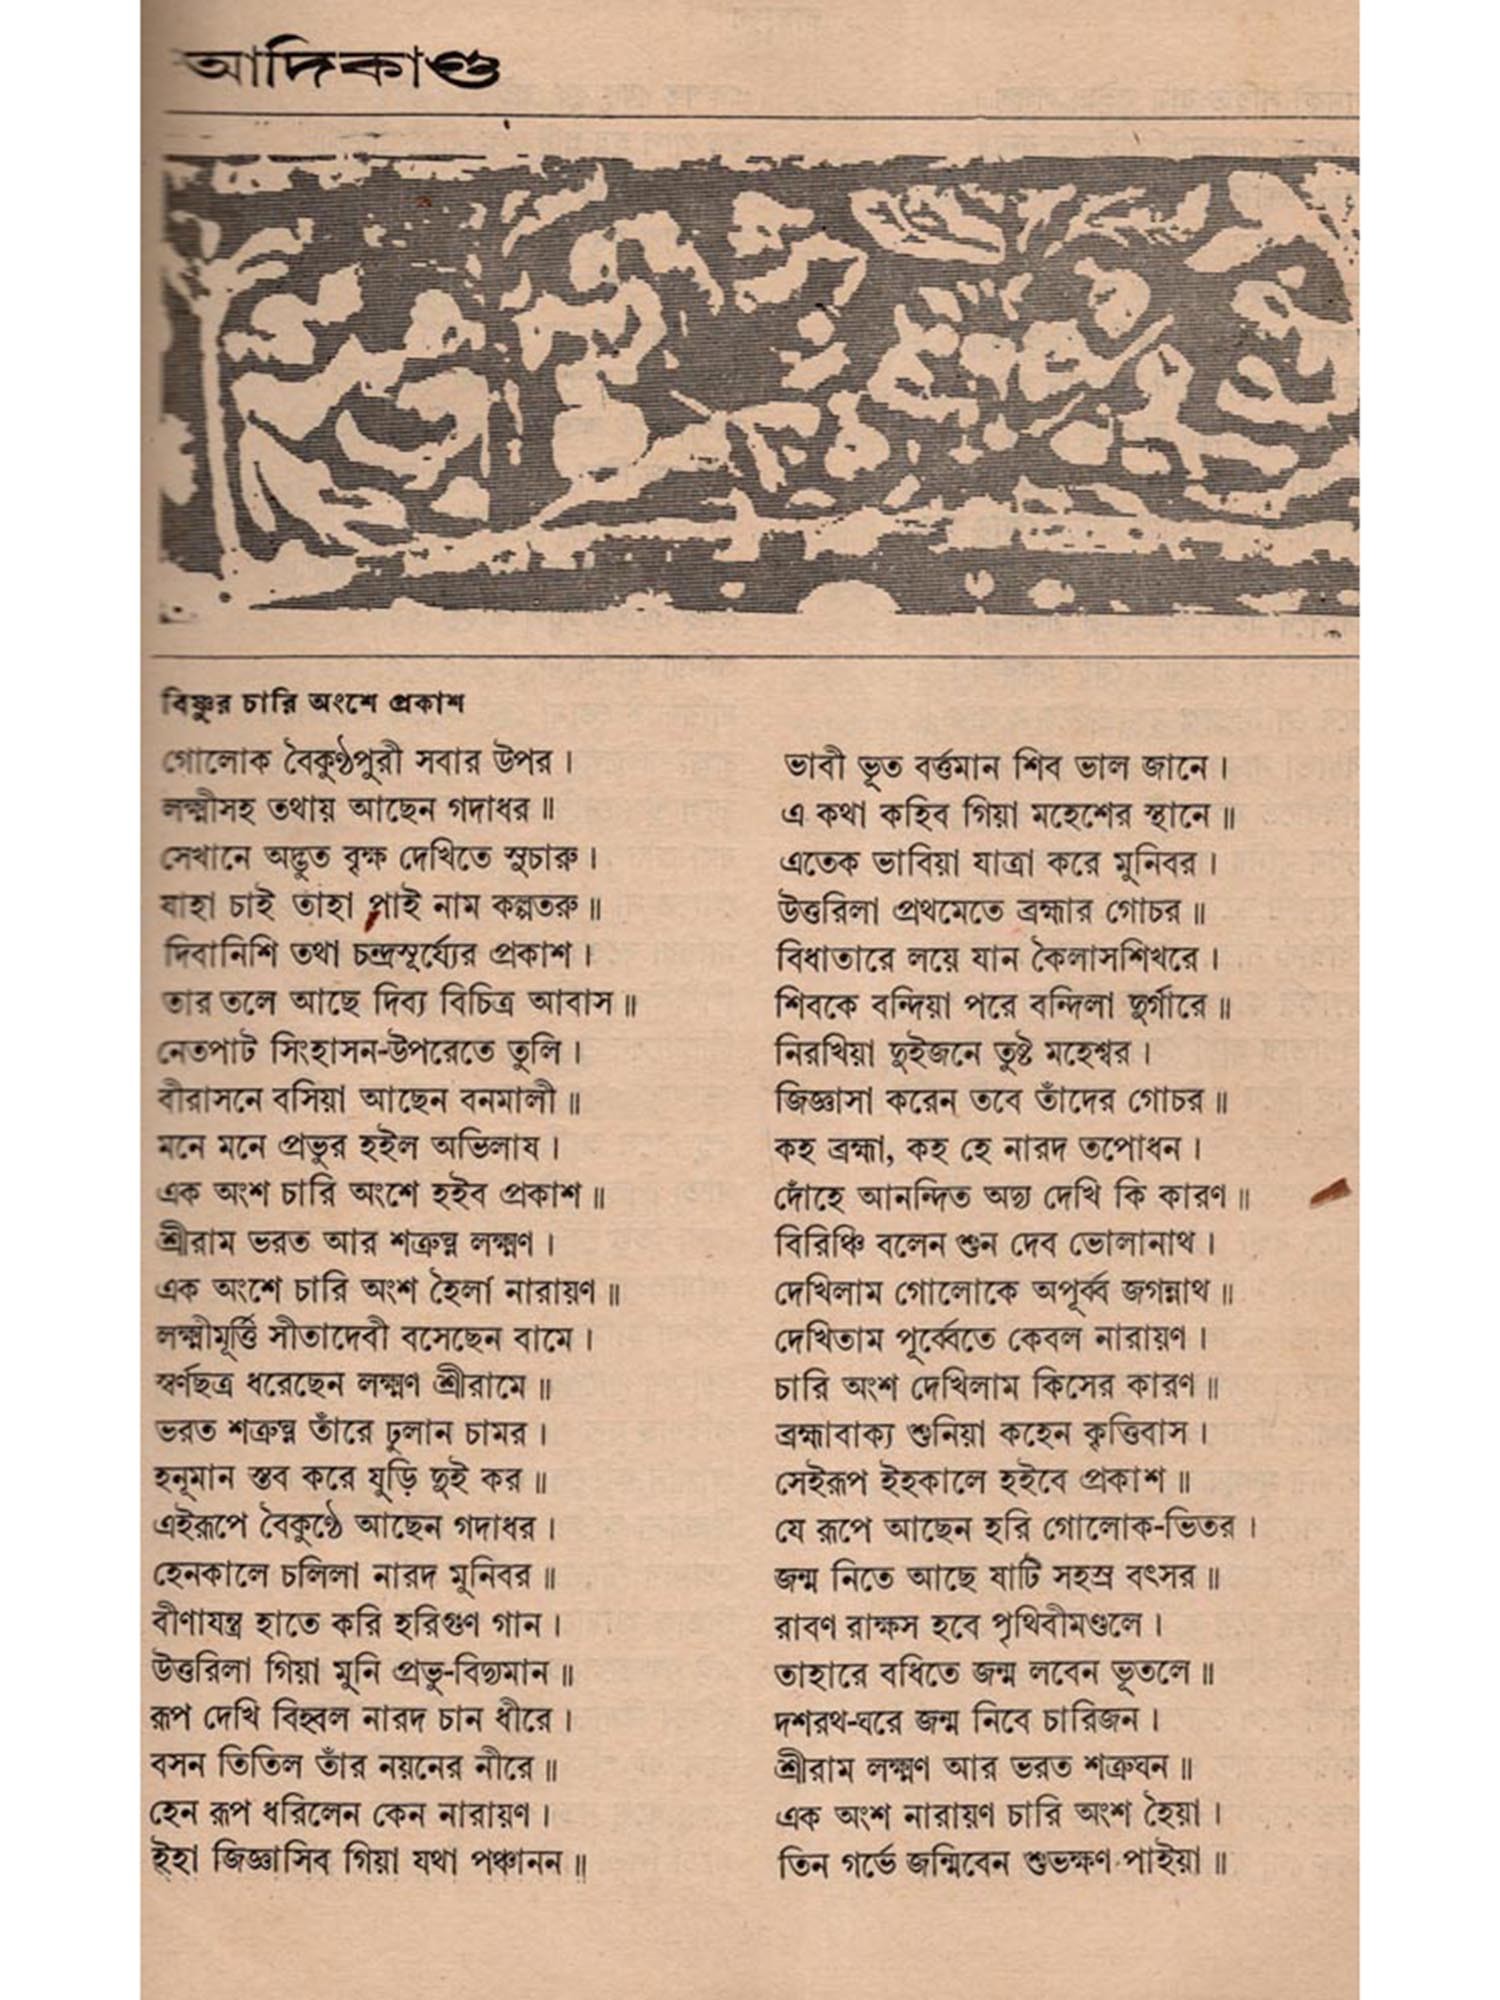 আদিকাণ্ড
বিষ্ণুর চারি অংশে প্রকাশ
গোলোক বৈকুণ্ঠপুরী সবার উপর ।
লক্ষ্মীসহ তথায় আছেন গদাধর ॥
সেখানে অদ্ভুত বৃক্ষ দেখিতে সুচারু ।
যাহা চাই তাহা পাই নাম কল্পতরু ॥
দিবানিশি তথা চন্দ্রসূর্য্যের প্রকাশ ।
তার তলে আছে দিব্য বিচিত্র আবাস ॥
নেতপাট সিংহাসন-উপরেতে তুলি ।
বীরাসনে বসিয়া আছেন বনমালী ॥
মনে মনে প্রভুর হইল অভিলাষ ।
এক অংশ চারি অংশে হইব প্রকাশ ॥
শ্রীরাম ভরত আর শত্রুঘ্ন লক্ষ্মণ ।
এক অংশে চারি অংশ হৈলা নারায়ণ ॥
লক্ষ্মীমূর্ত্তি সীতাদেবী বসেছেন বামে ।
স্বর্ণছত্র ধরেছেন লক্ষ্মণ শ্রীরামে ॥
ভরত শত্রুঘ্ন তাঁরে ঢুলান চামর ।
হনূমান স্তব করে যুড়ি দুই কর ॥
এইরূপে বৈকুণ্ঠে আছেন গদাধর ।
হেনকালে চলিলা নারদ মুনিবর ॥
বীণাযন্ত্র হাতে করি হরিগুণ গান ।
উত্তরিলা গিয়া মুনি প্রভু-বিদ্যমান ॥
রূপ দেখি বিহ্বল নারদ চান ধীরে ।
বসন তিতিল তাঁর নয়নের নীরে ॥
হেন রূপ ধরিলেন কেন নারায়ণ ।
ইহা জিজ্ঞাসিব গিয়া যথা পঞ্চানন ॥
ভাবী ভূত বর্ত্তমান শিব ভাল জানে ।
এ কথা কহিব গিয়া মহেশের স্থানে ॥
এতেক ভাবিয়া যাত্রা করে মুনিবর ।
উত্তরিলা প্রথমেতে ব্রহ্মার গোচর ॥
বিধাতারে লয়ে যান কৈলাসশিখরে ।
শিবকে বন্দিয়া পরে বন্দিলা দুর্গারে ॥
নিরখিয়া দুইজনে তুষ্ট মহেশ্বর ।
জিজ্ঞাসা করেন তবে তাঁদের গোচর ॥
কহ ব্রহ্মা, কহ হে নারদ তপোধন ।
দোঁহে আনন্দিত অদ্য দেখি কি কারণ ॥
বিরিঞ্চি বলেন শুন দেব ভোলানাথ ।
দেখিলাম গোলোকে অপূর্ব্ব জগন্নাথ ॥
দেখিতাম পূর্ব্বেতে কেবল নারায়ণ ।
চারি অংশ দেখিলাম কিসের কারণ ॥
ব্রহ্মাবাক্য শুনিয়া কহেন কৃত্তিবাস ।
সেইরূপ ইহকালে হইবে প্রকাশ ॥
যে রূপে আছেন হরি গোলোক-ভিতর ।
জন্ম নিতে আছে ষাটি সহস্র বৎসর ॥
রাবণ রাক্ষস হবে পৃথিবীমণ্ডলে ।
তাহারে বধিতে জন্ম লবেন ভূতলে ॥
দশরথ-ঘরে জন্ম নিবে চারিজন ।
শ্রীরাম লক্ষ্মণ আর ভরত শত্রুঘন ॥
এক অংশ নারায়ণ চারি অংশ হৈয়া ।
তিন গর্ভে জন্মিবেন শুভক্ষণ পাইয়া ॥